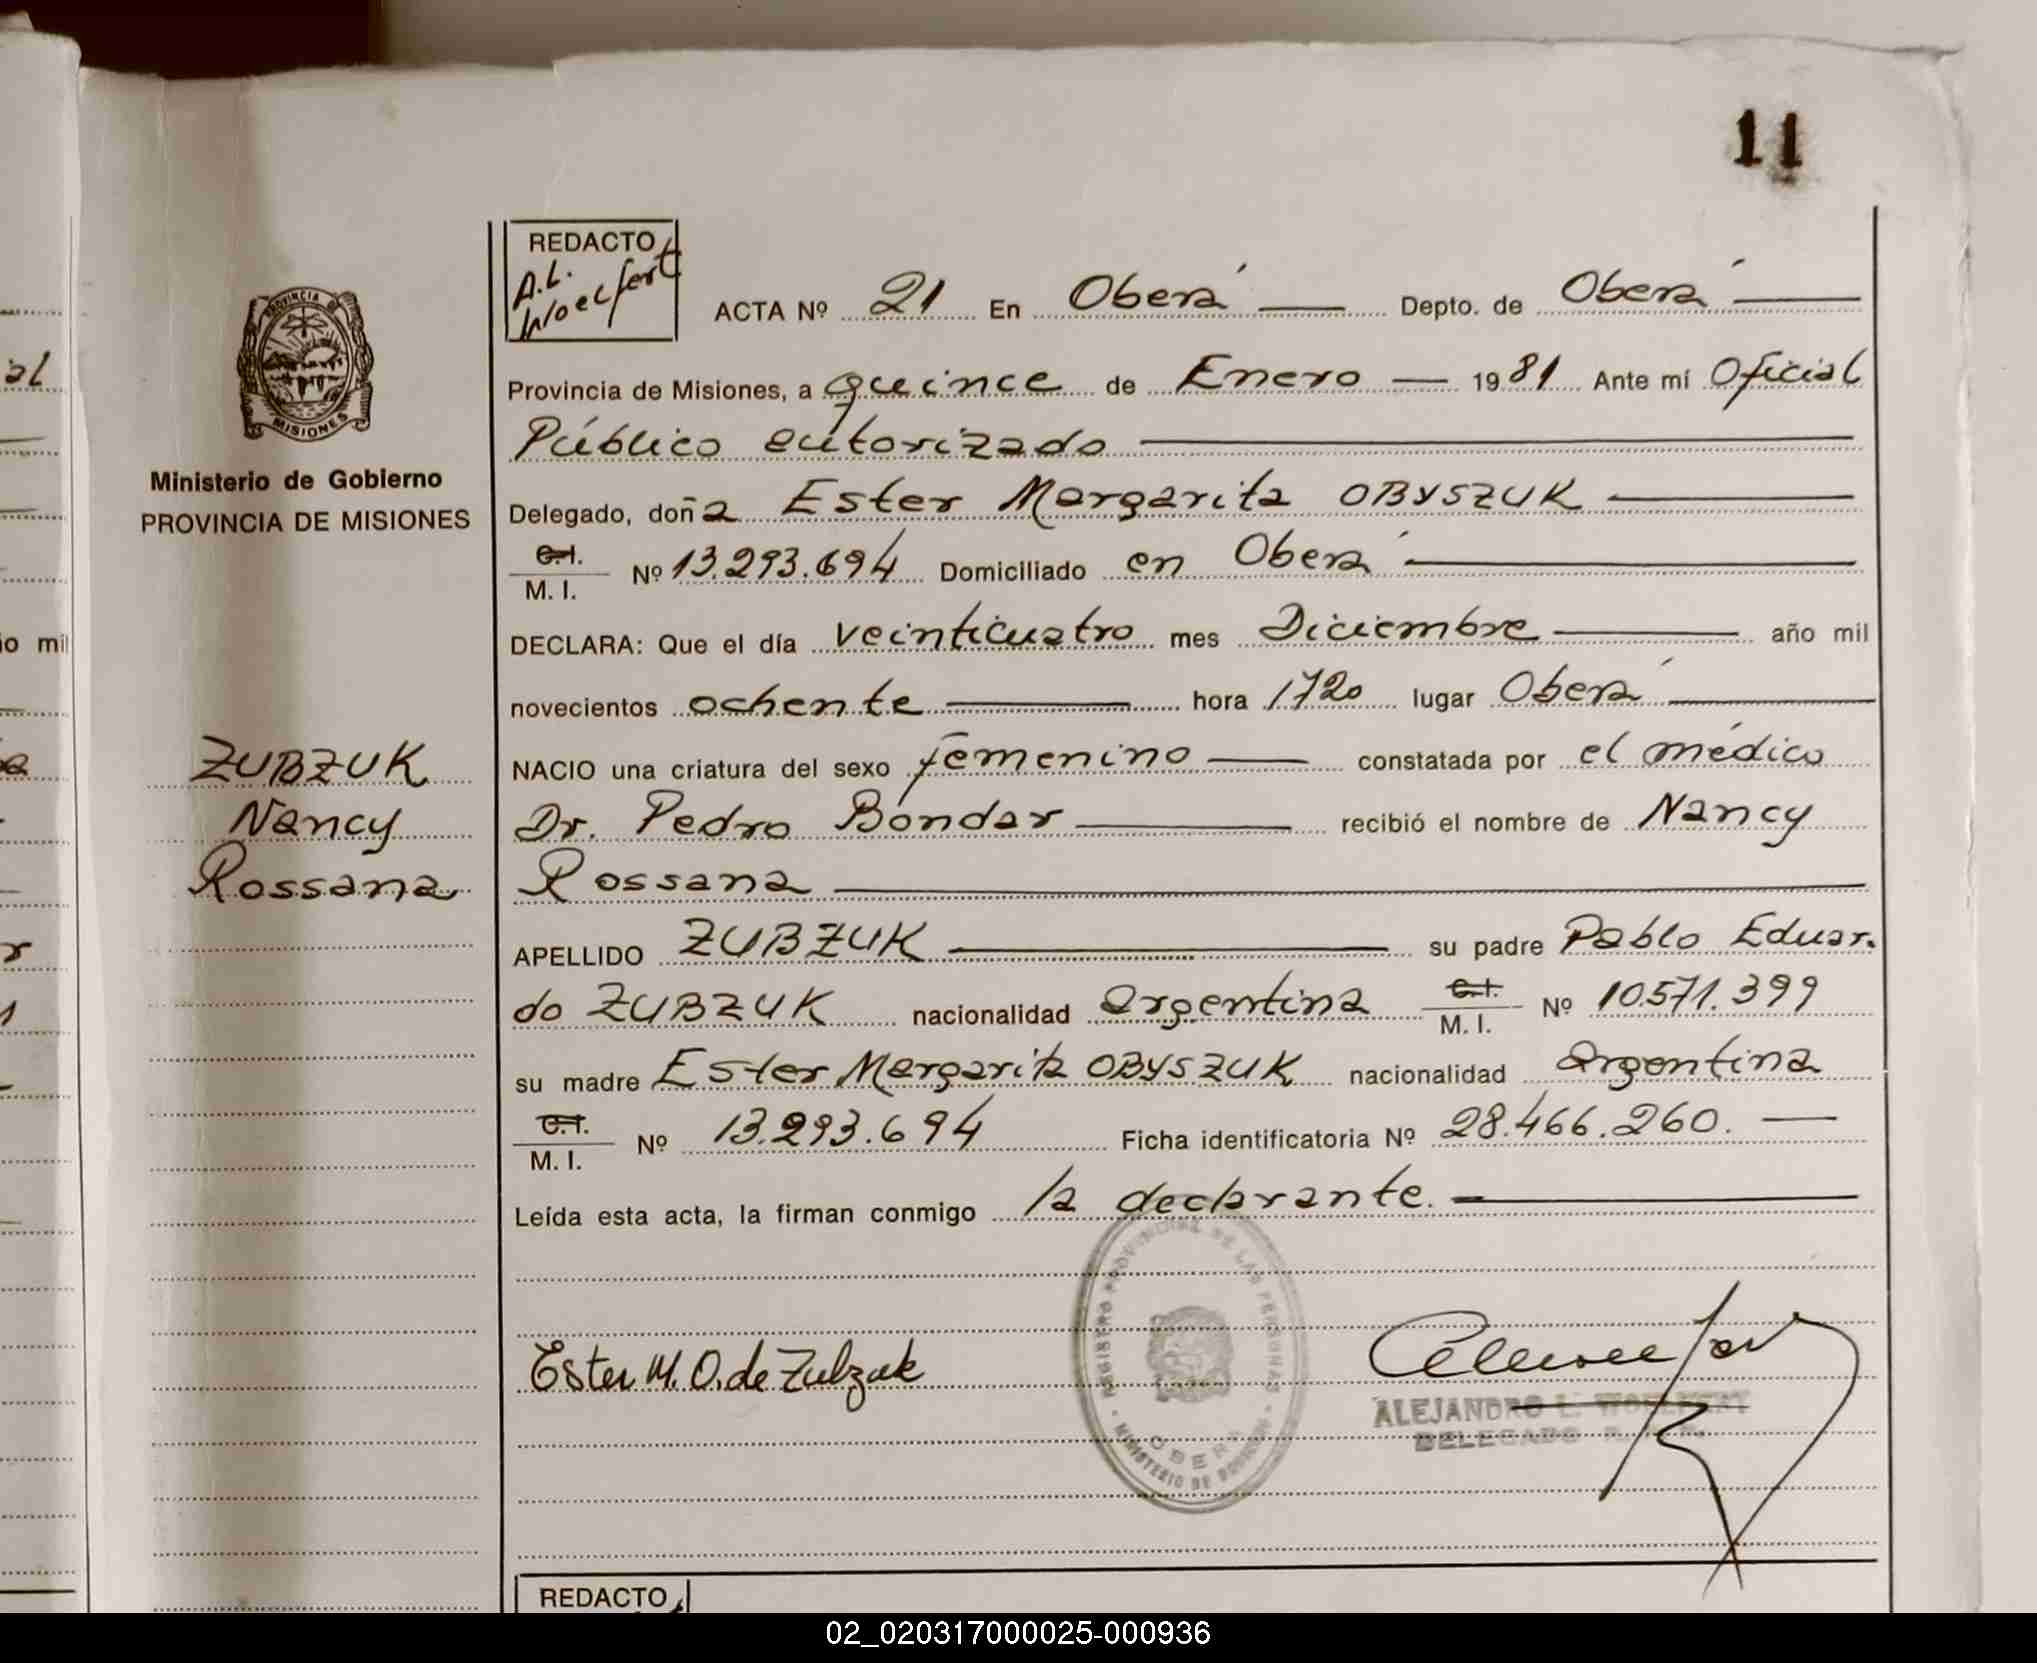 11
REDACTO
A.L.
Woelfert
ACTA Nº 21 En Oberá Depto. de Oberá
Provincia de Misiones, a quince de Enero 1981 Ante mí Oficial
Público autorizado
Delegado, doña Ester Margarita OBYSZUK
C.I.
M. I. Nº 13.293.694 Domiciliado en Oberá
DECLARA: Que el día veinticuatro mes Diciembre año mil
novecientos ochenta hora 1720 lugar Oberá
NACIO una criatura del sexo femenino constatada por el médico
Dr. Pedro Bondar recibió el nombre de Nancy
Rossana
APELLIDO ZUBZUK su padre Pablo Eduar.
do ZUBZUK nacionalidad argentina C.I. M. I. Nº 10.571.399
su madre Ester Margarita OBYSZUK nacionalidad argentina
C.I.
M. I. Nº 13.293.694 Ficha identificatoria Nº 28.466.260.
Leída esta acta, la firman conmigo la declarante.
Ester M. O. de Zubzuk
REGISTRO PROVINCIAL DE LAS PERSONAS
OBERA
MINISTERIO DE GOBIERNO
ALEJANDRO L. WOELFERT
DELEGADO
REDACTO
PROVINCIA DE
MISIONES
Ministerio de Gobierno
PROVINCIA DE MISIONES
ZUBZUK
Nancy
Rossana
al
io mil
02_020317000025-000936